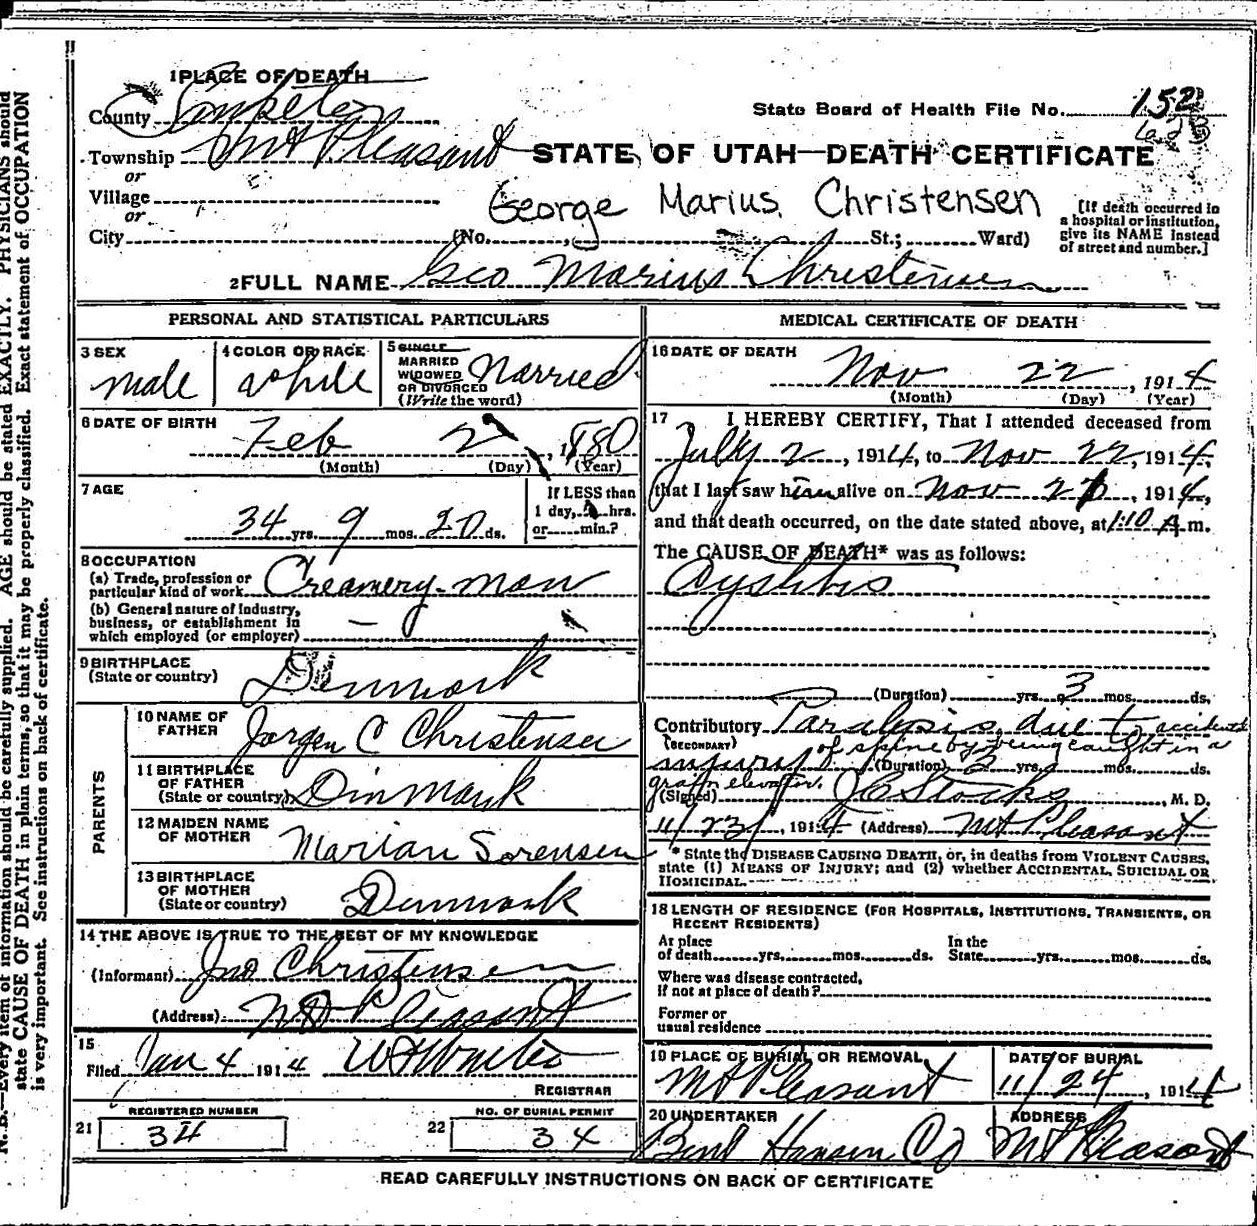 1 PLACE OF DEATH
County Sanpete
State Board of Health File No. 152
Township Mt Pleasant
STATE OF UTAH—DEATH CERTIFICATE
or
Village
or
George Marius Christensen
City (No. St.; Ward)
[If death occurred in a hospital or institution, give its NAME instead of street and number.]
2 FULL NAME Geo Marius Christensen
PERSONAL AND STATISTICAL PARTICULARS
3 SEX
male
4 COLOR OR RACE
white
5 SINGLE
MARRIED
WIDOWED
OR DIVORCED
(Write the word)
Married
6 DATE OF BIRTH
Feb 2, 1880
(Month) (Day) (Year)
7 AGE
34 yrs. 9 mos. 20 ds.
If LESS than
1 day, hrs.
or min.?
8 OCCUPATION
(a) Trade, profession or
particular kind of work Creamery-man
(b) General nature of industry,
business, or establishment in
which employed (or employer) —
9 BIRTHPLACE
(State or country) Denmark
PARENTS
10 NAME OF
FATHER Jorgen C Christensen
11 BIRTHPLACE
OF FATHER
(State or country) Dinmark
12 MAIDEN NAME
OF MOTHER Marian Sorensen
13 BIRTHPLACE
OF MOTHER
(State or country) Denmark
14 THE ABOVE IS TRUE TO THE BEST OF MY KNOWLEDGE
(Informant) Jno Christensen
(Address) Mt Pleasant
15
Filed Jan 4 1914
REGISTRAR
21 REGISTERED NUMBER
34
22 NO. OF BURIAL PERMIT
34
MEDICAL CERTIFICATE OF DEATH
16 DATE OF DEATH
Nov 22, 1914
(Month) (Day) (Year)
17 I HEREBY CERTIFY, That I attended deceased from
July 2, 1914, to Nov 22, 1914,
that I last saw him alive on Nov 21, 1914,
and that death occurred, on the date stated above, at 1:10 A.m.
The CAUSE OF DEATH* was as follows:
Cystitis
(Duration) yrs. 3 mos. ds.
Contributory Paralysis, due to accident
(SECONDARY) of spine by being caught in a
injury (Duration) 3 yrs. mos. ds.
grain elevator.
(Signed) J C Stocks, M. D.
11/23, 1914 (Address) Mt Pleasant
* State the DISEASE CAUSING DEATH, or, in deaths from VIOLENT CAUSES,
state (1) MEANS OF INJURY; and (2) whether ACCIDENTAL, SUICIDAL OR
HOMICIDAL.
18 LENGTH OF RESIDENCE (FOR HOSPITALS, INSTITUTIONS, TRANSIENTS, OR
RECENT RESIDENTS)
At place
of death yrs. mos. ds.
In the
State yrs. mos. ds.
Where was disease contracted,
if not at place of death?
Former or
usual residence
19 PLACE OF BURIAL OR REMOVAL
Mt Pleasant
DATE OF BURIAL
11/24, 1914
20 UNDERTAKER
Hansen Co
ADDRESS
Mt Pleasant
READ CAREFULLY INSTRUCTIONS ON BACK OF CERTIFICATE
N. B.—Every item of information should be carefully supplied. AGE should be stated EXACTLY. PHYSICIANS should
state CAUSE OF DEATH in plain terms, so that it may be properly classified. Exact statement of OCCUPATION
is very important. See instructions on back of certificate.